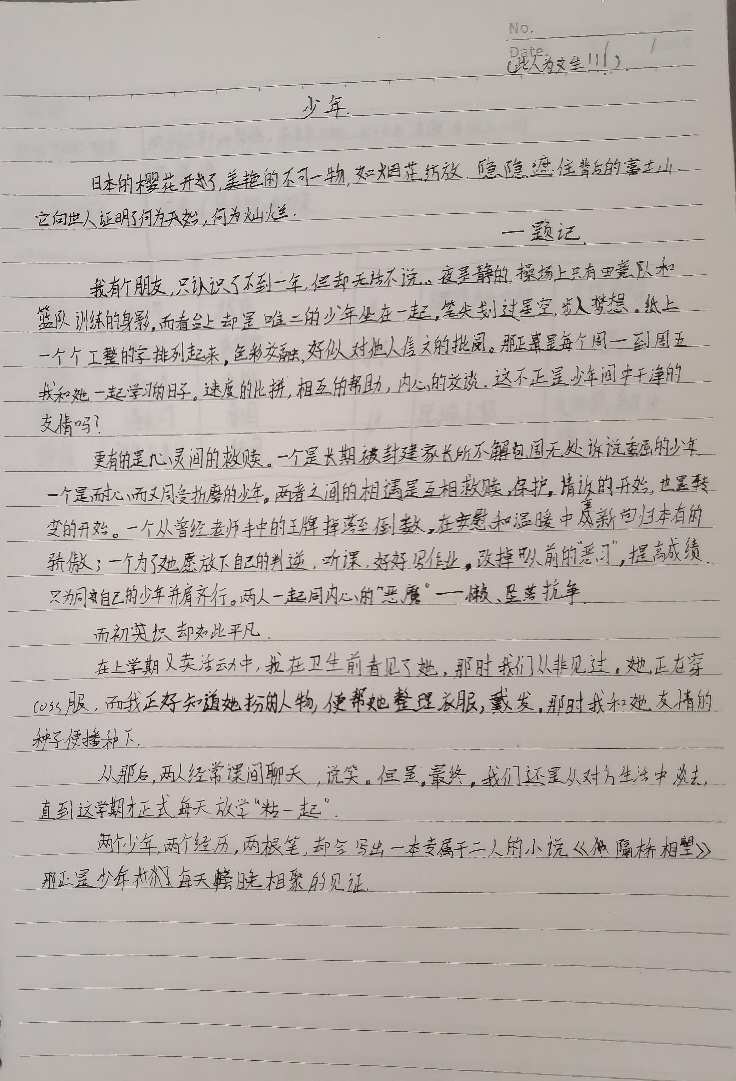 No.
Date.
(此人为女生!!!)
少年
日本的樱花开了,美艳的不可一物,如烟花绽放,隐隐遮住背后的富士山
它向世人证明了何为开始,何为灿烂.
一题记.
我有个朋友,只认识了不到一年,但却无法不说。夜是静的,操场上只有田竞队和
篮队训练的身影,而看台上却是唯二的少年坐在一起,笔尖划过星空,步入梦想。纸上
一个个工整的字排列起来,色彩交融,好似对他人信文的批阅。那正是每个周一到周五
我和她一起学习的日子,速度的比拼,相互的帮助,内心的交谈.这不正是少年间中干净的
友情吗?
更有的是心灵间的救赎。一个是长期被封建家长所不解包围无处诉说委屈的少年
一个是而而又同受折磨的少年。两者之间的相遇是互相救赎,保护,情诉的开始,也是转
变的开始。一个从曾经老师手中的王牌掉落至倒数,在安慰和温暖中重新回归本有的
骄傲;一个为了她愿放下自己的判逆,听课,好好写作业,改掉以前的“恶习”,提高成绩.
只为同自己的少年并肩齐行。两人一起同内心的“恶魔”一懒、坠落抗争.
而初英识却如此平凡.
在上学期义卖活动中,我在卫生前看见了她,那时我们从非见过。她正在穿
cos服,而我正好知道她扮的人物,便帮她整理衣服,戴发。那时我和她友情的
种子便播种下.
从那后,两人经常课间聊天,说笑。但是,最终,我们还是从对方生活中淡去,
直到这学期才正式每天放学“粘一起”.
两个少年,两个经历,两根笔,却会写出一本专属于二人的小说《隔桥相望》
那正是少年们每天傍晚相聚的见证.